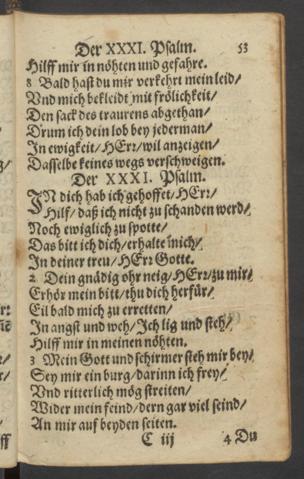 Der XXXI. Psalm. 53
Hilff mir in nöhten und gefahre.
8 Bald hast du mir verkehrt mein leid/
Vnd mich bekleidt mit frölichkeit/
Den sack des traurens abgethan/
Drum ich dein lob bey jederman/
In ewigkeit/ HErr/ wil anzeigen/
Dasselbe keines wegs verschweigen.
Der XXXI. Psalm.
IN dich hab ich gehoffet/ HErr/
Hilf/ daß ich nicht zu schanden werd/
Noch ewiglich zu spotte/
Das bitt ich dich/ erhalte mich/
In deiner treu/ HErr Gottt.
2 Dein gnädig ohr neig/ HErr/ zu mir/
Erhör mein bitt/ thu dich herfür/
Eil bald mich zu erretten/
In angst und weh/ Ich lig und steh/
Hilff mir in meinen nöhten.
3 Mein Gott und schirmer steh mir bey/
Sey mir ein burg/ darinn ich frey/
Vnd ritterlich mög streiten/
Wider mein feind/ dern gar viel seind/
An mir auf beyden seiten.
C iij 4 Du